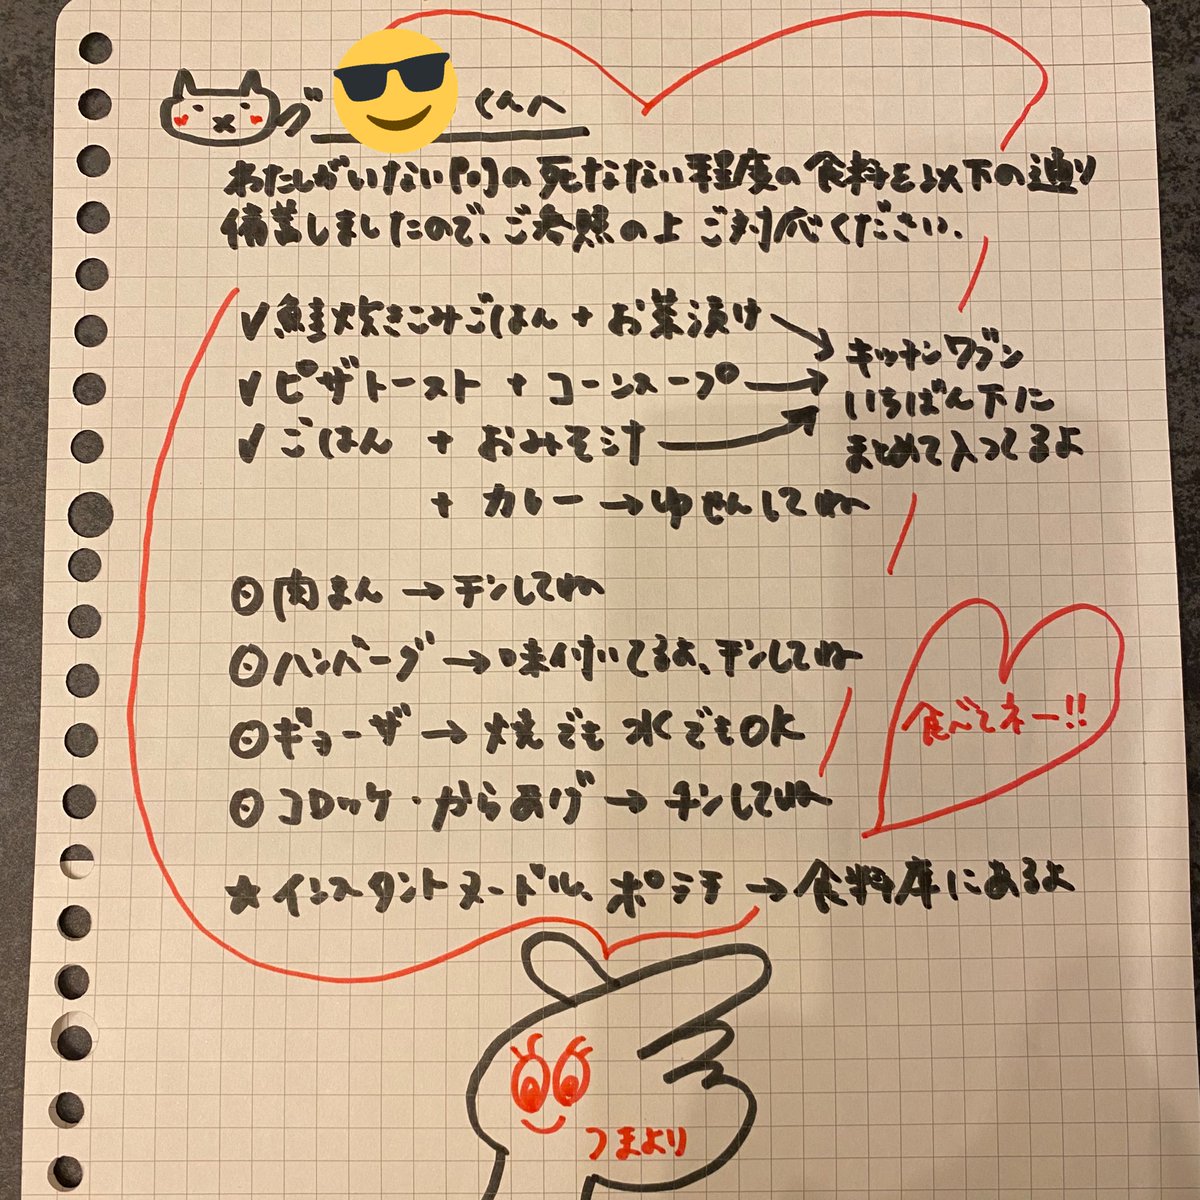 くんへ
わたしがいない間の死なない程度の食料を以下の通り
備蓄しましたので、ご参照の上ご対応ください。
✓鮭炊きこみごはん + お茶漬け
✓ピザトースト + コーンスープ →
✓ごはん + おみそ汁 →
キッチンワゴン
いちばん下に
まとめて入ってるよ
+ カレー → ゆせんしてね
⊙肉まん → チンしてね
⊙ハンバーグ → 味付いてるよ、チンしてね
⊙ギョーザ → 焼でも水でもOK
⊙コロッケ・からあげ → チンしてね
食べてネー!!
★インスタントヌードル、ポテチ → 食料庫にあるよ
つまより